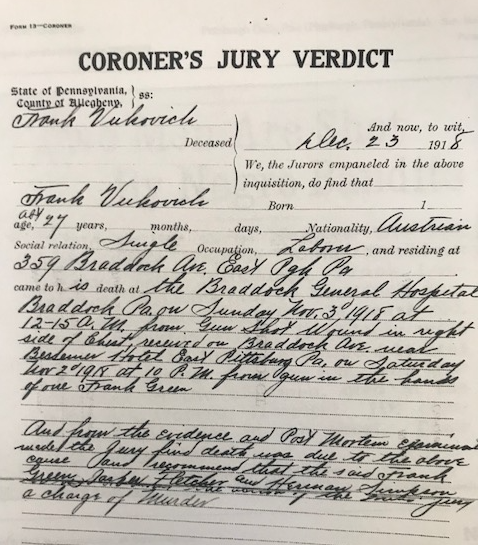 FORM 13—CORONER
CORONER'S JURY VERDICT
State of Pennsylvania,
County of Allegheny, } ss:
Frank Vukovich
Deceased
And now, to wit,
Dec. 23 1918
We, the Jurors empaneled in the above
inquisition, do find that
Frank Vukovich Born 1
abt
age, 27 years, months, days, Nationality, Austrian
Social relation, Single Occupation, Laborer, and residing at
359 Braddock Ave, East Pgh Pa
came to h is death at the Braddock General Hospital
Braddock Pa. on Sunday Nov. 3 1918 at
12-15 A.M. from Gun Shot Wound in right
side of Chest, received on Braddock Ave. near
Bessemer Hotel East Pittsburg Pa. on Saturday
Nov 2 1918 at 10 P.M. from gun in the hands
of one Frank Green
And from the evidence and Post Mortem
made the Jury find death was due to the above
cause and recommend that the said Frank
Green, Fletcher and Herman Simpson
the of the Grand jury
a charge of Murder